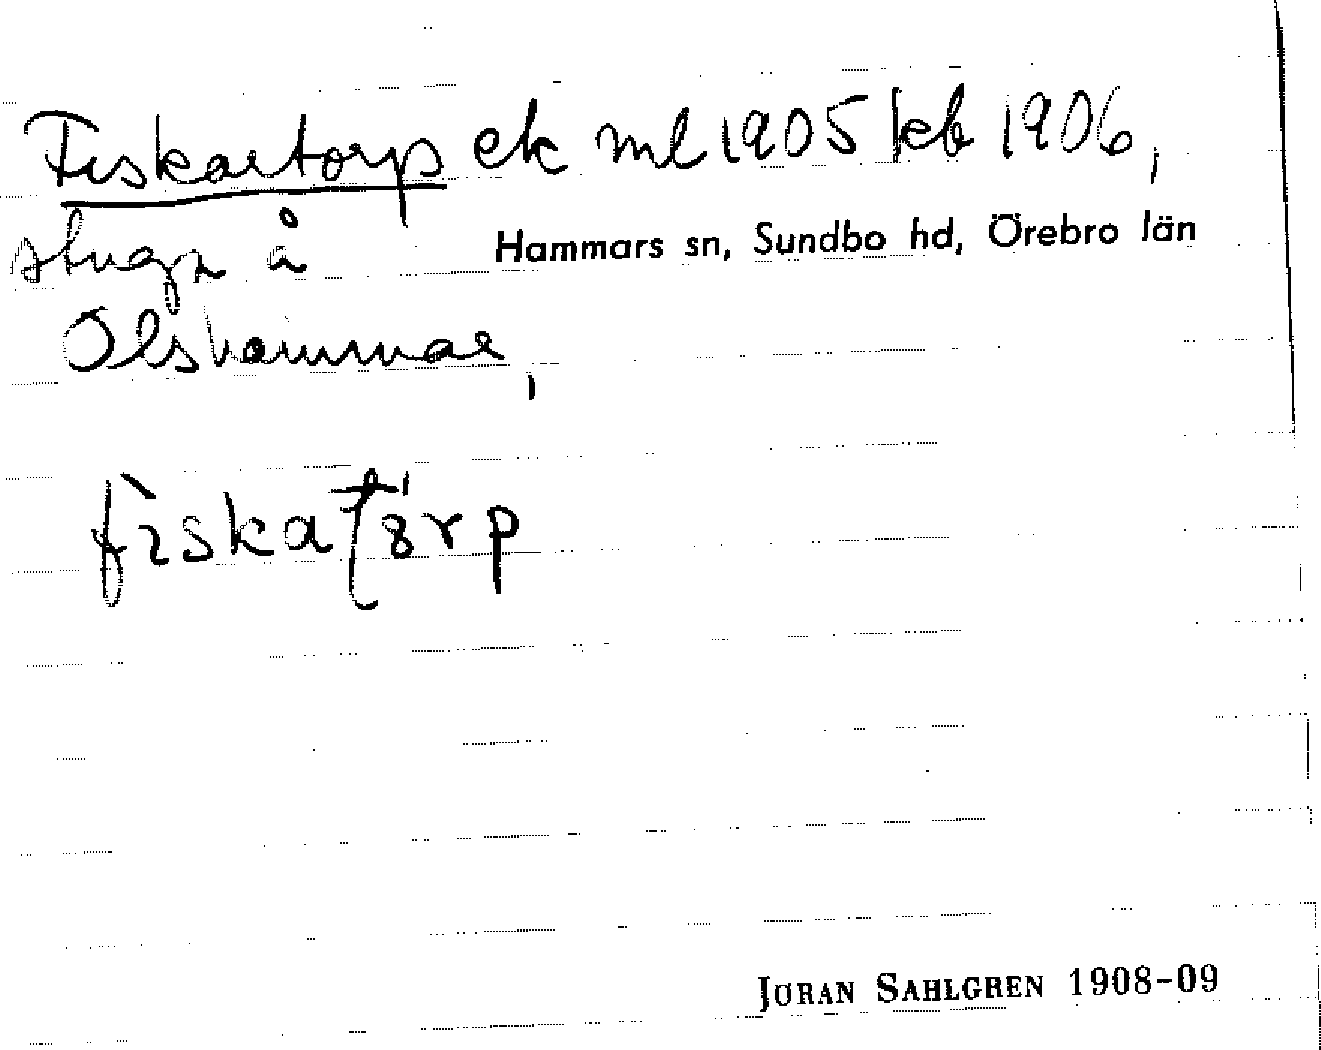 Fiskartorp ek ml 1905 kb 1906,
stuga å
Hammars sn, Sundbo hd, Örebro län
Olshammar,
fìskatʹɔrp
JÖRAN SAHLGREN 1908-09